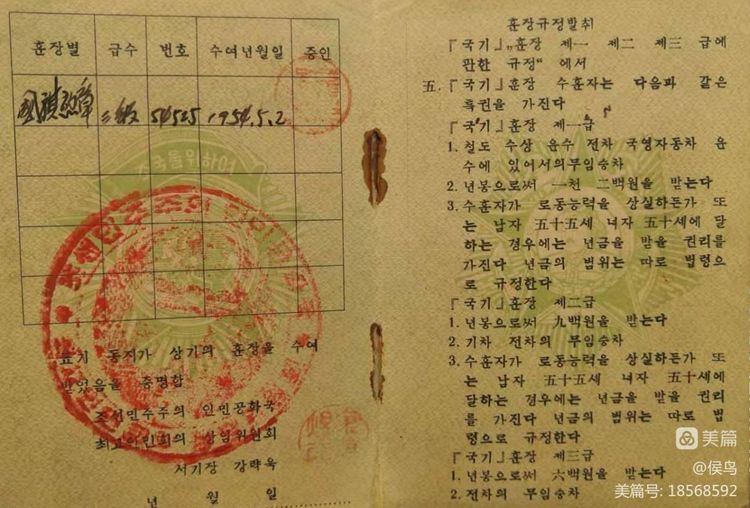 훈장별 급수 번호 수여년월일 증인
国旗勲章 三級 54525 1954.5.2
조국을위하여
표기 동지가 상기의 훈장을 수여
받었음을 증명함
조선민주주의 인민공화국
최고인민회의 상임위원회
서기장 강략욱
년 월 일
훈장규정발취
『국기』„훈장 제一 제二 제三급에
관한 규정“에서
五. 『국기』훈장 수훈자는 다음과 같은
특권을 가진다
『국기』훈장 제一급
1. 철도 수상 운수 전차 국영자동차 운
수에 있어서의무임승차
2. 년봉으로써 一천 二백원을 받는다
3. 수훈자가 로동능력을 상실하든가 또
는 남자 五十五세 녀자 五十세에 달
하는 경우에는 년금을 받을 권리를
가진다 년금의 범위는 따로 법령으
로 규정한다
『국기』훈장 제二급
1. 년봉으로써 九백원을 받는다
2. 기차 전차의 무임승차
3. 수훈자가 로동능력을 상실하든가 또
는 남자 五十五세 녀자 五十세에
달하는 경우에는 년금을 받을 권리
를 가진다 년금의 범위는 따로 법
령으로 규정한다
『국기』훈장 제三급
1. 년봉으로써 六백원을 받는다
2. 전차의 무임승차
美篇
@侯鸟
美篇号: 18568592